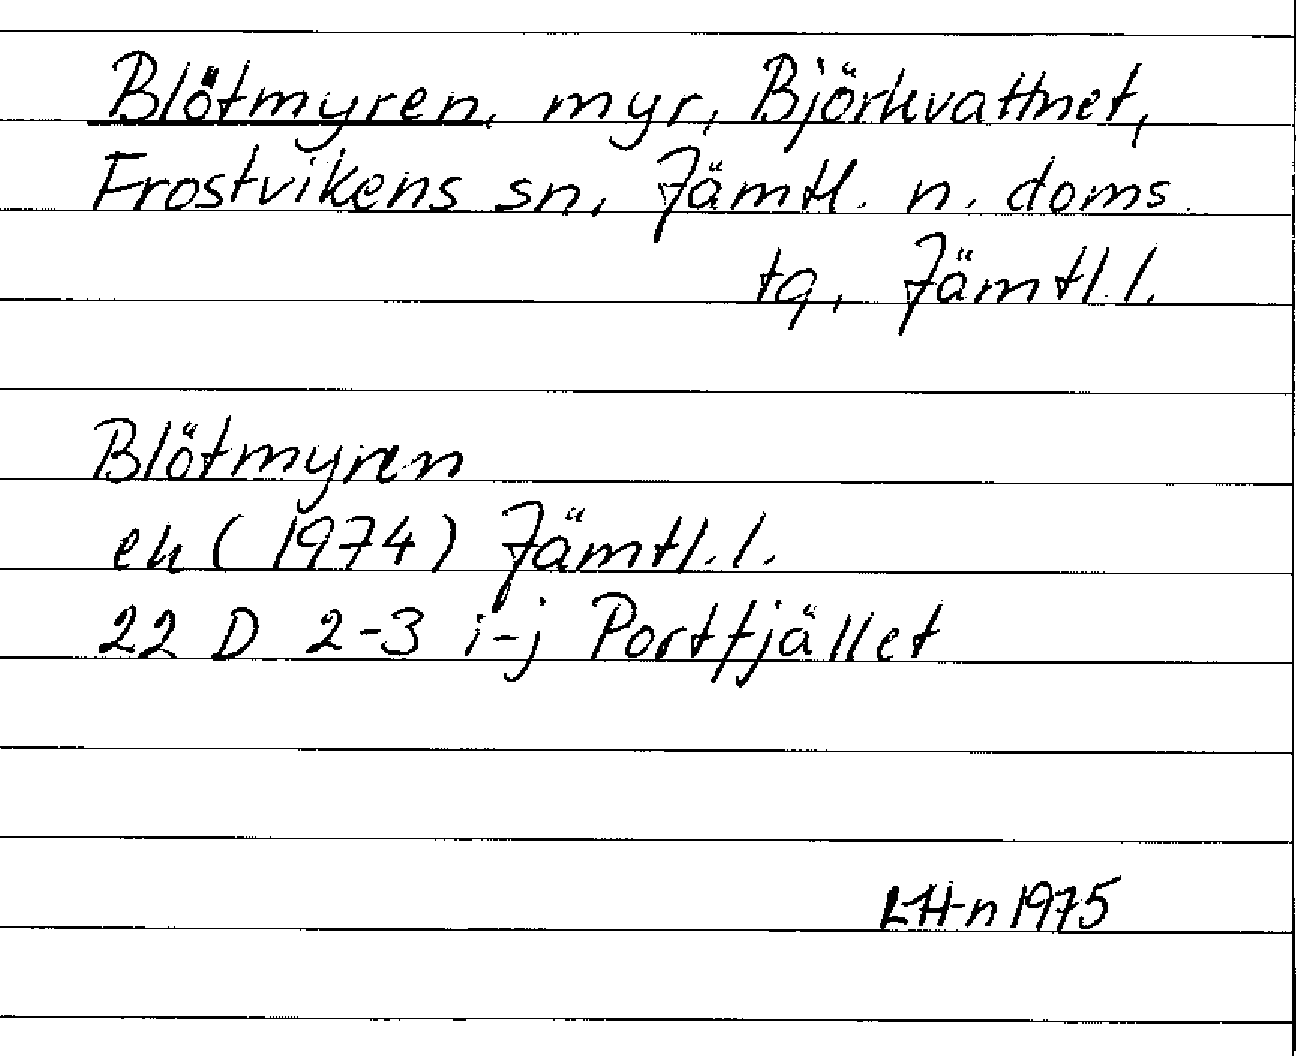 Blötmyren, myr, Björkvattnet,
Frostvikens sn, Jämtl. n. doms.
tg, Jämtl. l.
Blötmyren
ek (1974) Jämtl. l.
22 D 2-3 i-j Portfjället
LH-n 1975